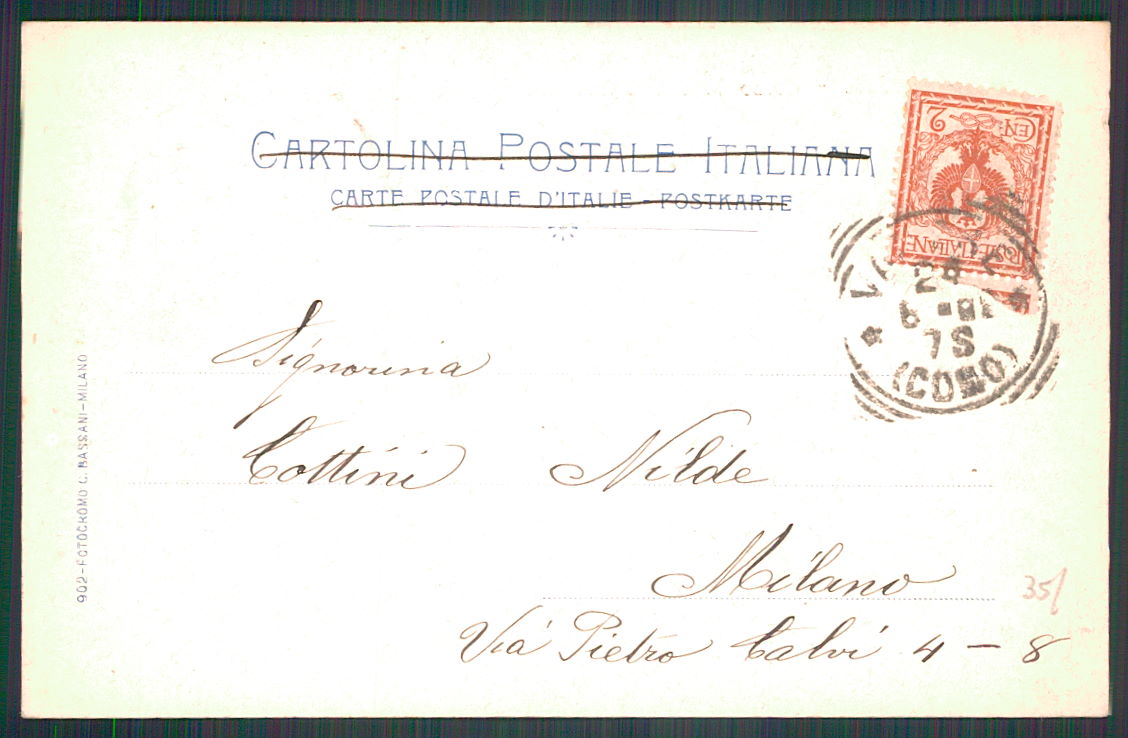 CARTOLINA POSTALE ITALIANA
CARTE POSTALE D'ITALIE - POSTKARTE
CEN. 2
POSTE ITALIANE
(COMO)
Signorina
Cottini Nilde
Milano
35/
Via Pietro Calvi 4 - 8
902-FOTOCROMO C. BASSANI-MILANO